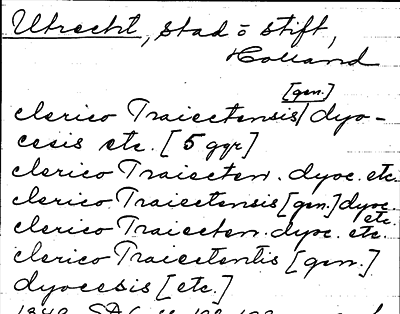 Utrecht, stad o stift,
Holland
[gen.]
clerico Traiectensis dyo-
cesis etc. [5 ggr]
clerico Traiecten. dyoc. etc.
clerico Traiectensis [gen.] dyoc.
etc.
clerico Traiecten. dyoc. etc.
clerico Traiectentis [gen.]
dyocesis [etc.]